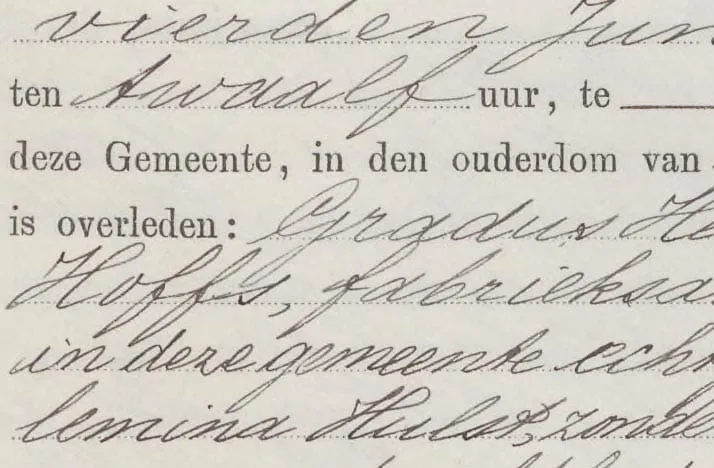 vierden Jun
ten twaalf uur, te
deze Gemeente, in den ouderdom van
is overleden: Gradus He
Hoffs, fabrieksa
in deze gemeente ech
lemina Hulst, zonde